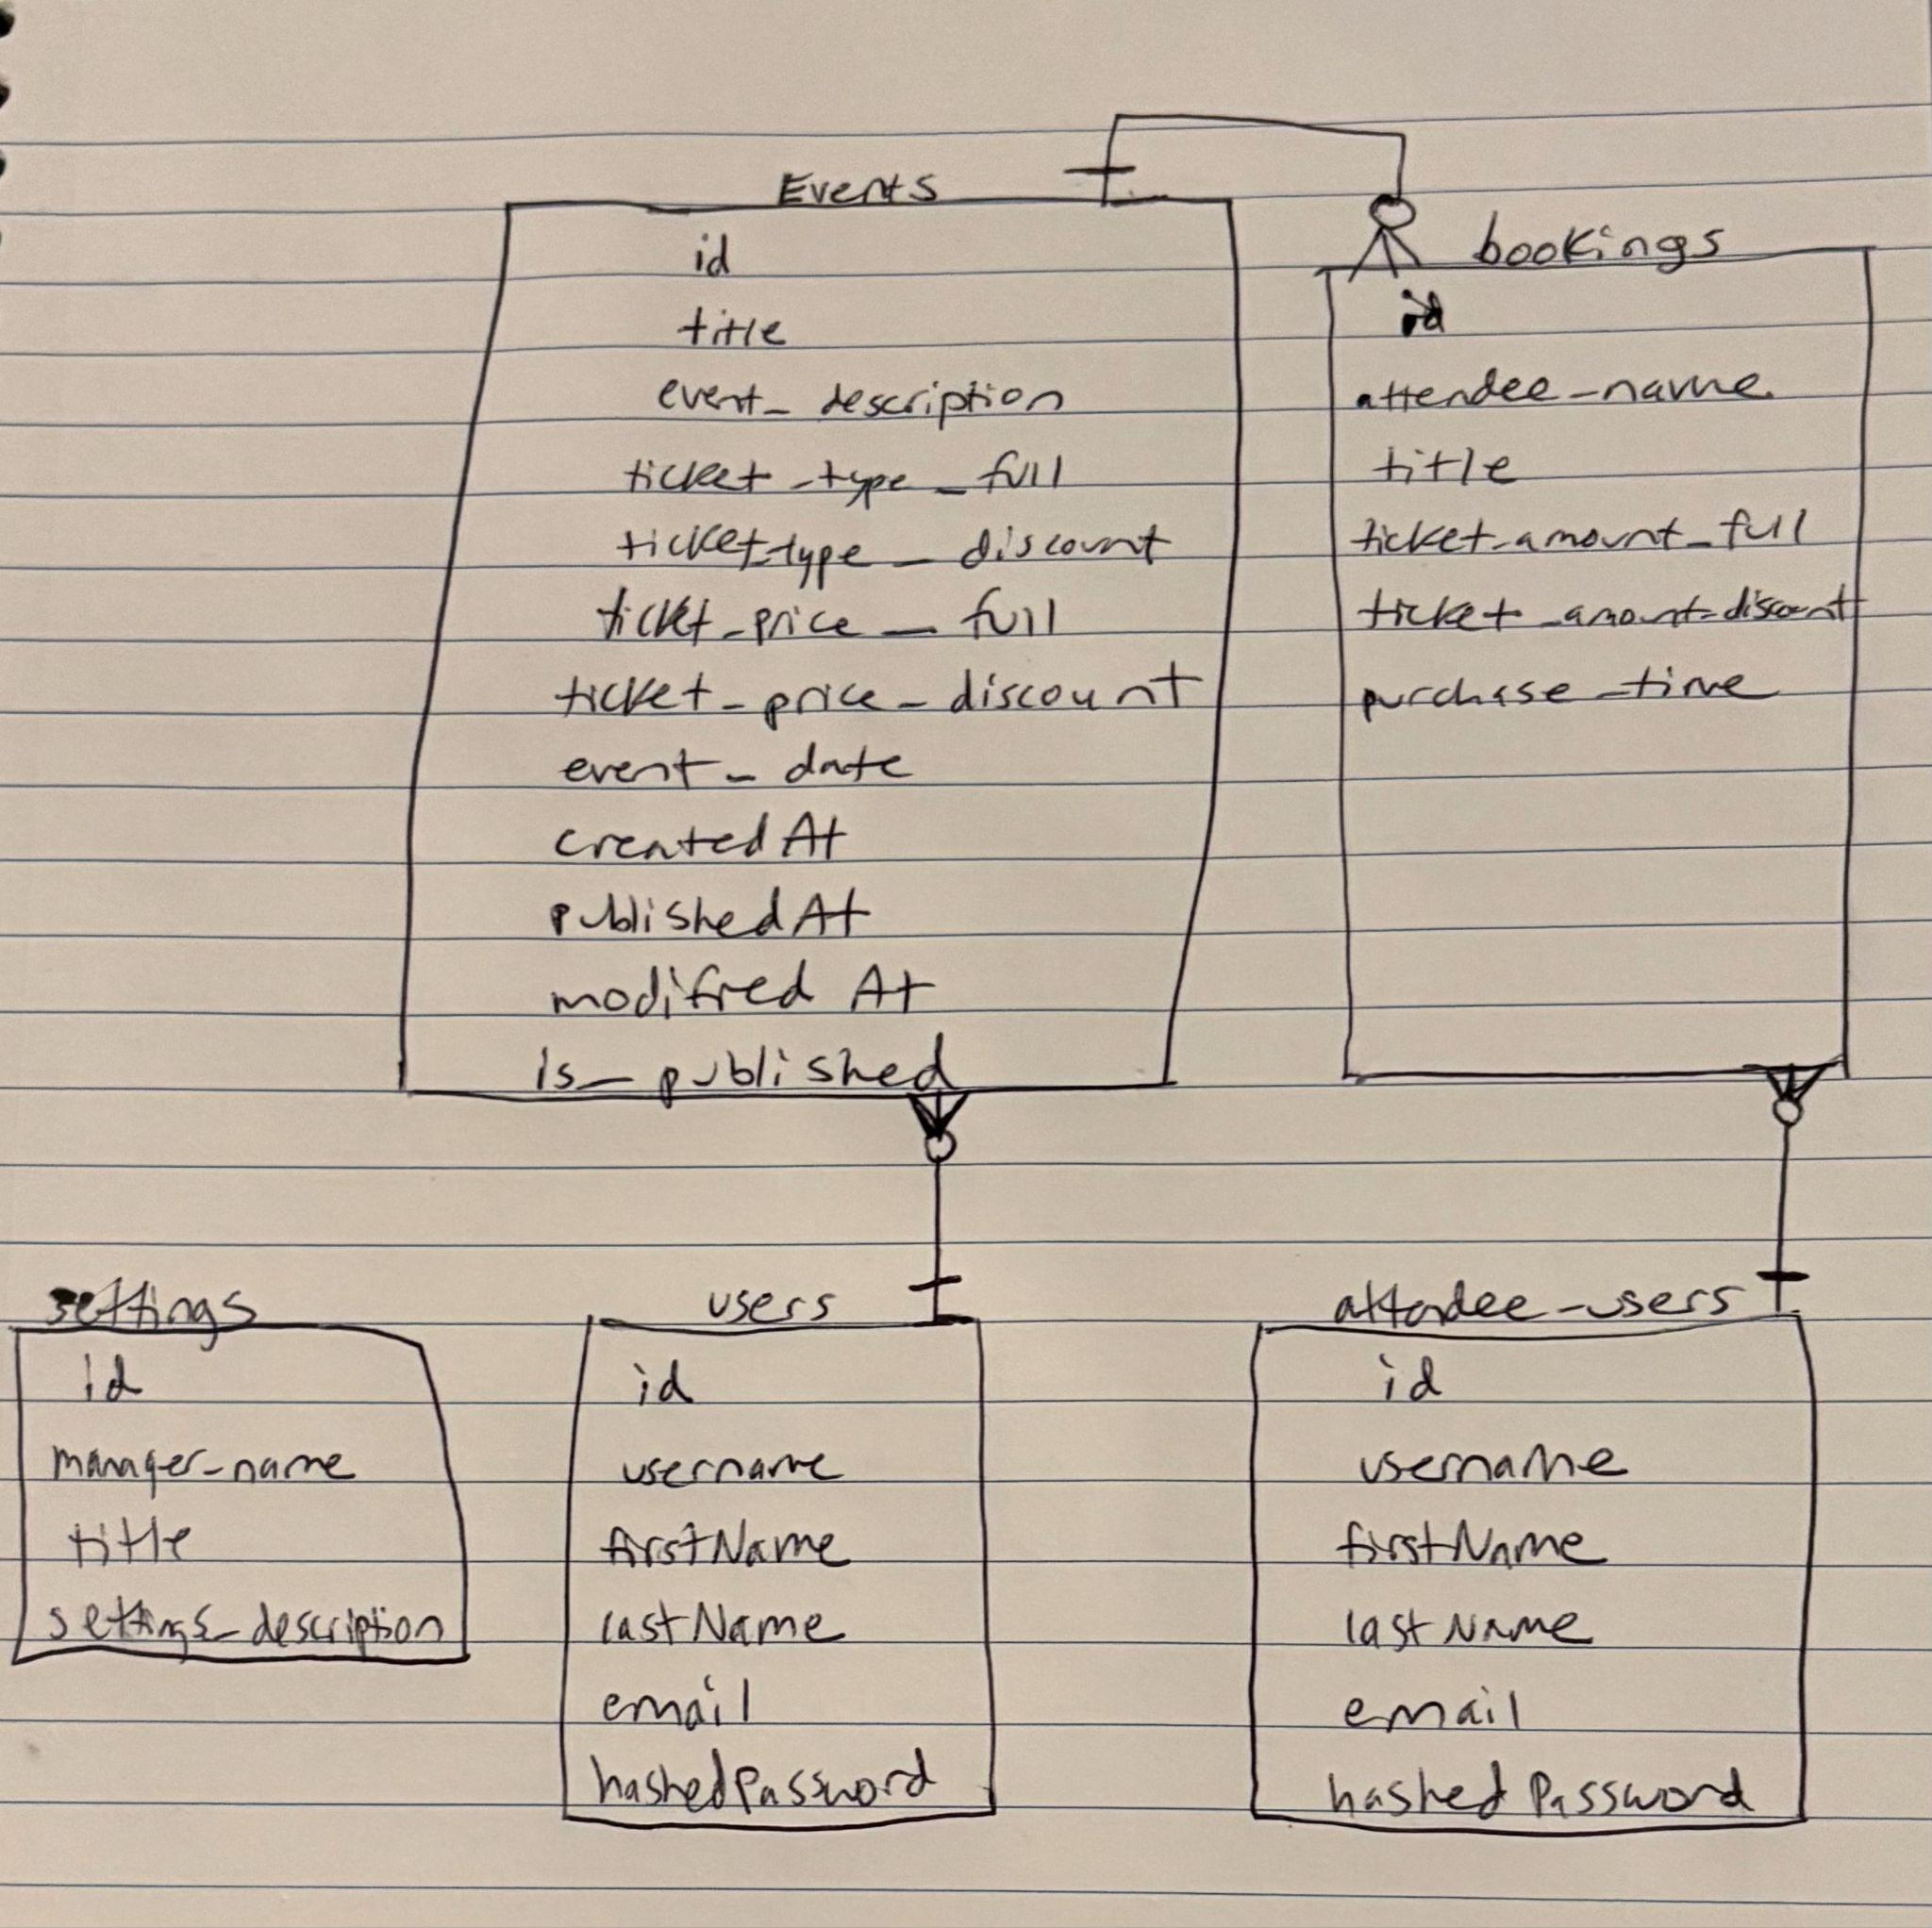 Events
id
title
event_description
ticket_type_full
ticket_type_discount
ticket_price_full
ticket_price_discount
event_date
createdAt
publishedAt
modified At
is_published
bookings
id
attendee_name
title
ticket_amount_full
ticket_amount_discount
purchase_time
settings
id
manager_name
title
settings_description
users
id
username
firstName
lastName
email
hashedPassword
attendee_users
id
username
firstName
lastName
email
hashed Password